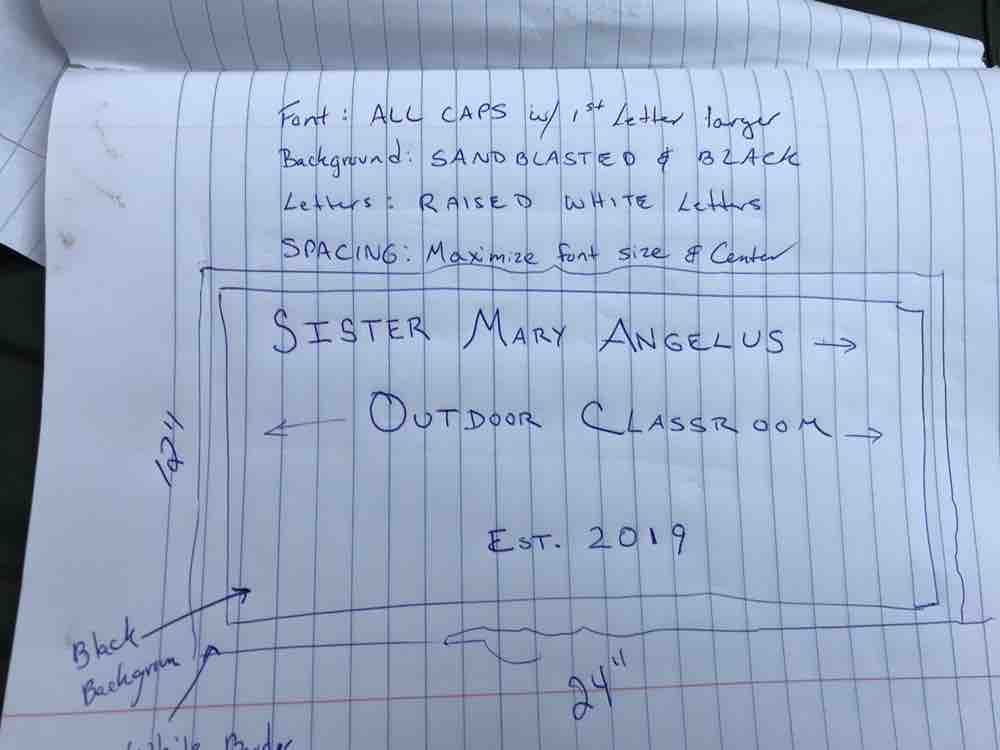 Font: ALL CAPS w/ 1st Letter larger
Background: SANDBLASTED & BLACK
Letters: RAISED WHITE Letters
SPACING: Maximize font size & Center
SISTER MARY ANGELUS →
← OUTDOOR CLASSROOM →
EST. 2019
12"
Black
Backgroun
24"
White Border